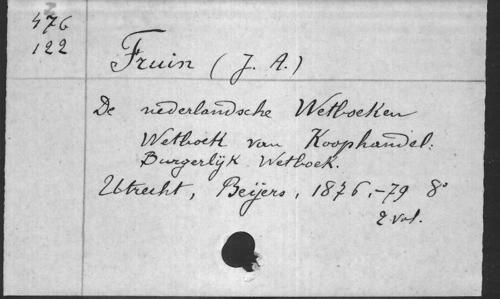 476
122
Fruin (J. A.)
De nederlandsche Wetboeken
Wetboek van Koophandel:
Burgerlijk Wetboek.
Utrecht, Beijers, 1876,-79 8°
2 vol.